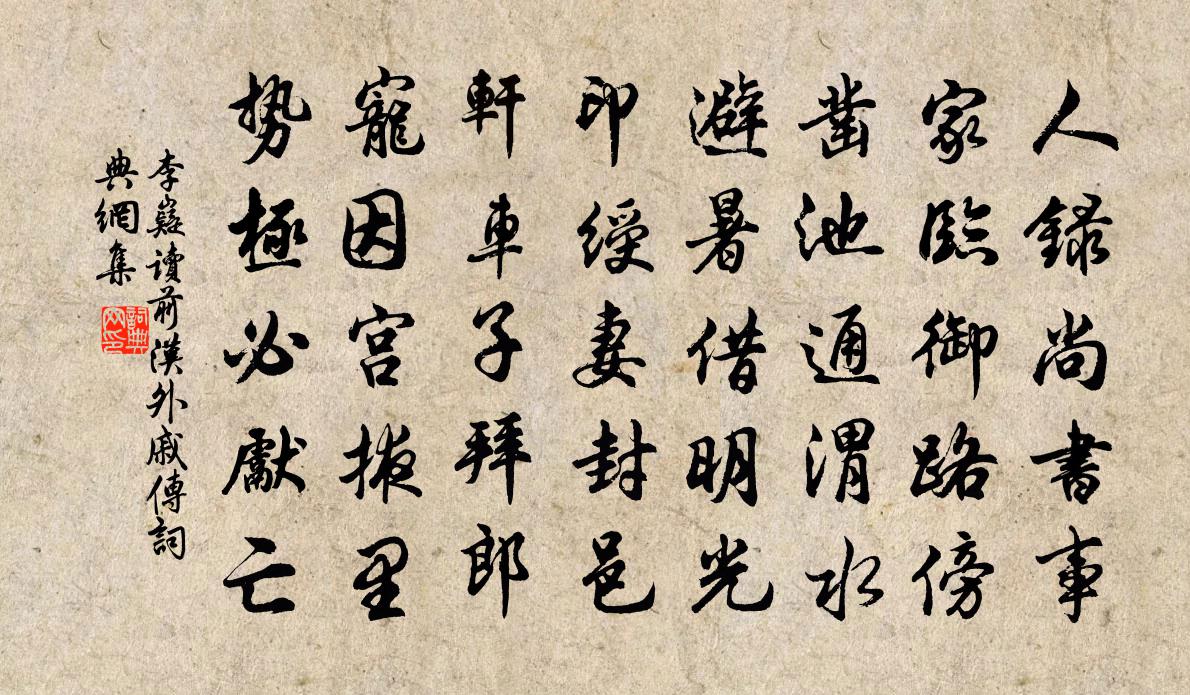 人錄尚書事
家臨御路傍
凿池通渭水
避暑借明光
印綬妻封邑
軒車子拜郎
寵因宮掖里
势極必獻亡
李嶷讀前漢外戚傳詞
典網集
詞典网印